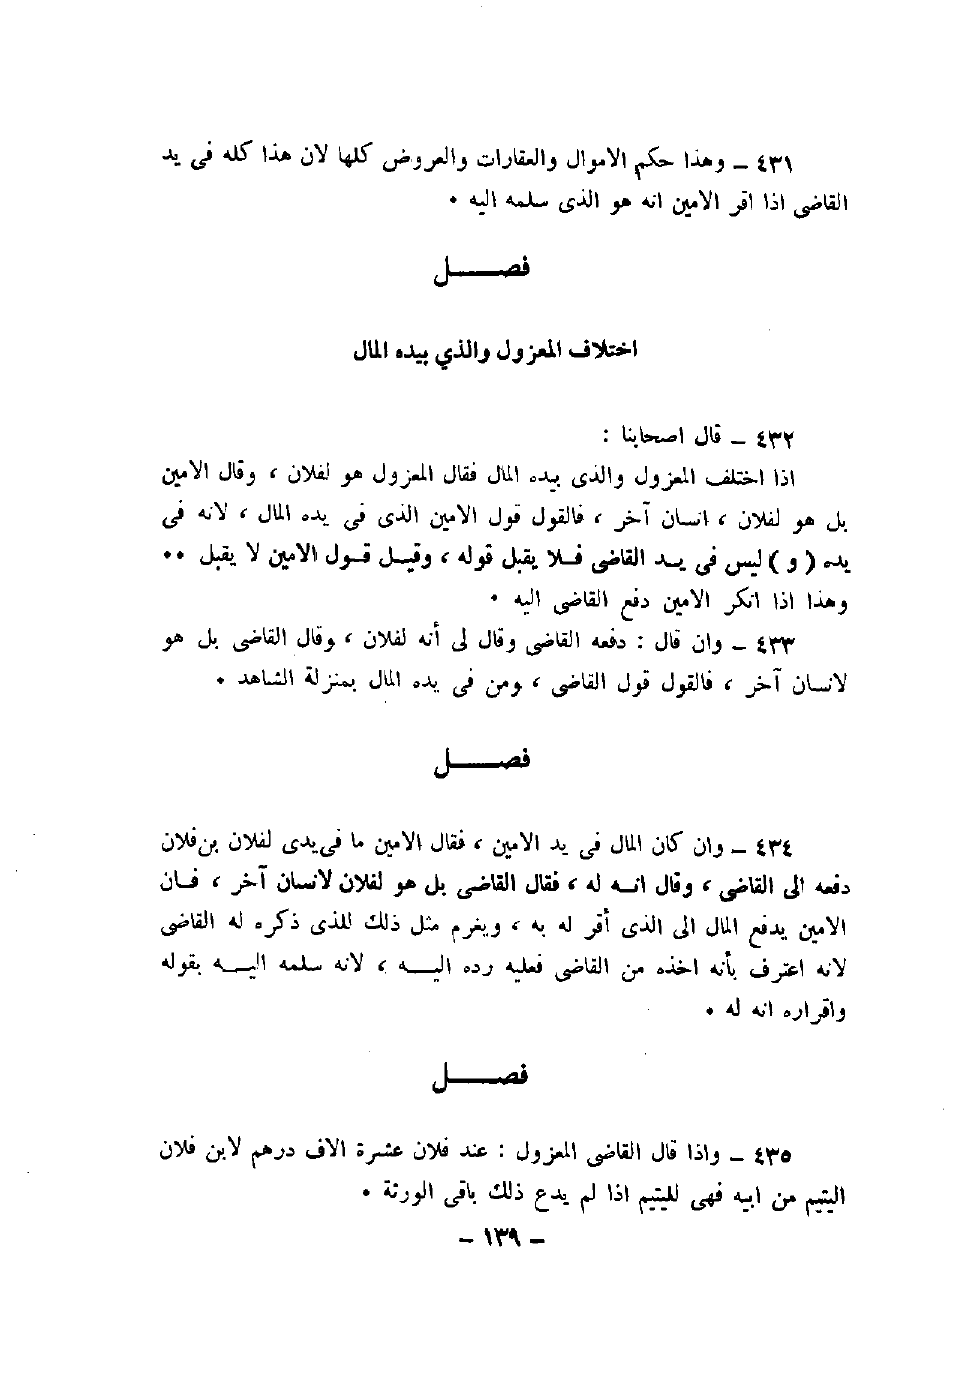 ٤٣١ ــ وهذا حكم الاموال والعقارات والعروض كلها لان هذا كله فى يد
القاضى اذا اقر الامين انه هو الذى سلمه اليه ٠
فصـــــل
اختلاف المعزول والذي بيده المال
٤٣٢ ــ قال اصحابنا :
اذا اختلف المعزول والذى بيده المال فقال المعزول هو لفلان ، وقال الامين
بل هو لفلان ، انسان آخر ، فالقول قول الامين الذى فى يده المال ، لانه فى
يده ( و ) ليس فى يــد القاضى فــلا يقبل قوله ، وقيــل قــول الامين لا يقبل ٠٠
وهذا اذا انكر الامين دفع القاضى اليه ٠
٤٣٣ ــ وان قال : دفعه القاضى وقال لى أنه لفلان ، وقال القاضى بل هو
لانسان آخر ، فالقول قول القاضى ، ومن فى يده المال بمنزلة الشاهد ٠
فصـــــل
٤٣٤ ــ وان كان المال فى يد الامين ، فقال الامين ما فى يدى لفلان بن فلان
دفعه الى القاضى ، وقال انــه له ، فقال القاضى بل هو لفلان لانسان آخر ، فــان
الامين يدفع المال الى الذى أقر له به ، ويغرم مثل ذلك للذى ذكره له القاضى
لانه اعترف بأنه اخذه من القاضى فعليه رده اليـــه ، لانه سلمه اليـــه بقوله
واقراره انه له ٠
فصـــــل
٤٣٥ ــ واذا قال القاضى المعزول : عند فلان عشرة الاف درهم لابن فلان
اليتيم من ابيه فهى لليتيم اذا لم يدع ذلك باقى الورثة ٠
ــ ١٣٩ ــ